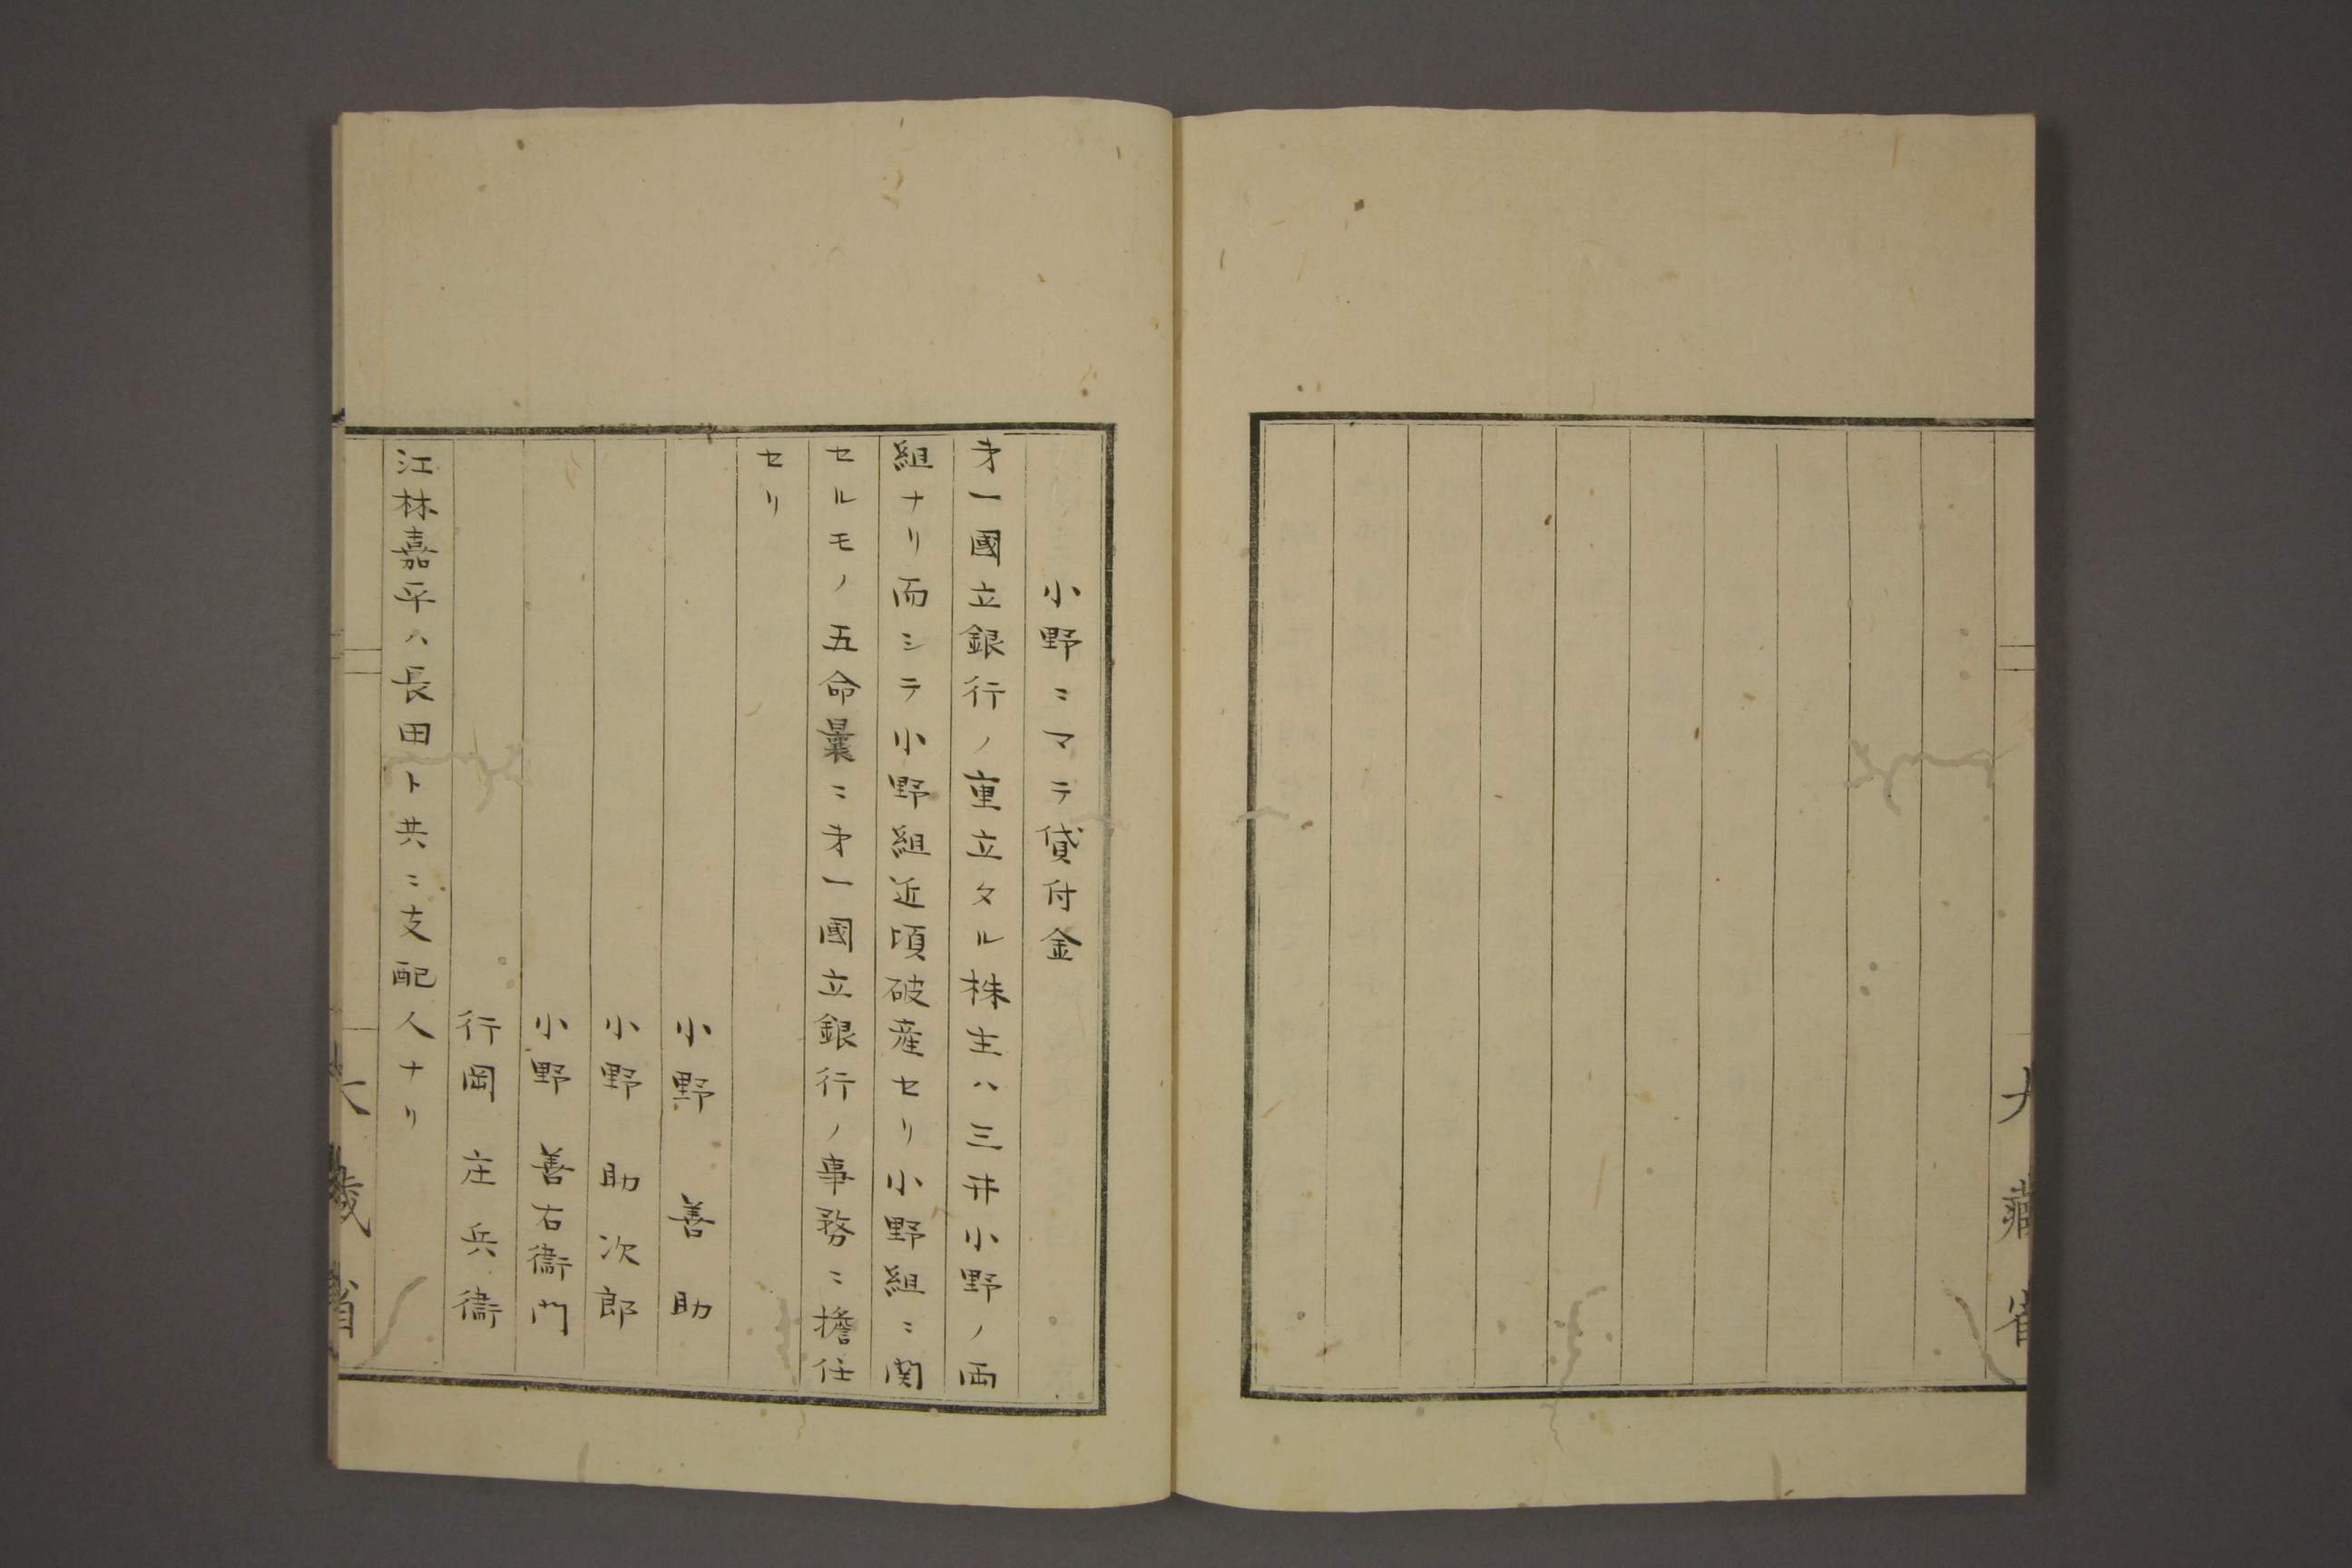 大藏省
小野ニマテ貸付金
才一國立銀行ノ重立タル株主ハ三井小野ノ両
組ナリ而シテ小野組近頃破産セリ小野組ニ関
セルモノ五命曩ニ才一國立銀行ノ事務ニ擔任
セリ
小野 善助
小野 助次郎
小野 善右衛門
行岡 庄兵衛
江林嘉平ハ長田ト共ニ支配人ナリ
大藏省